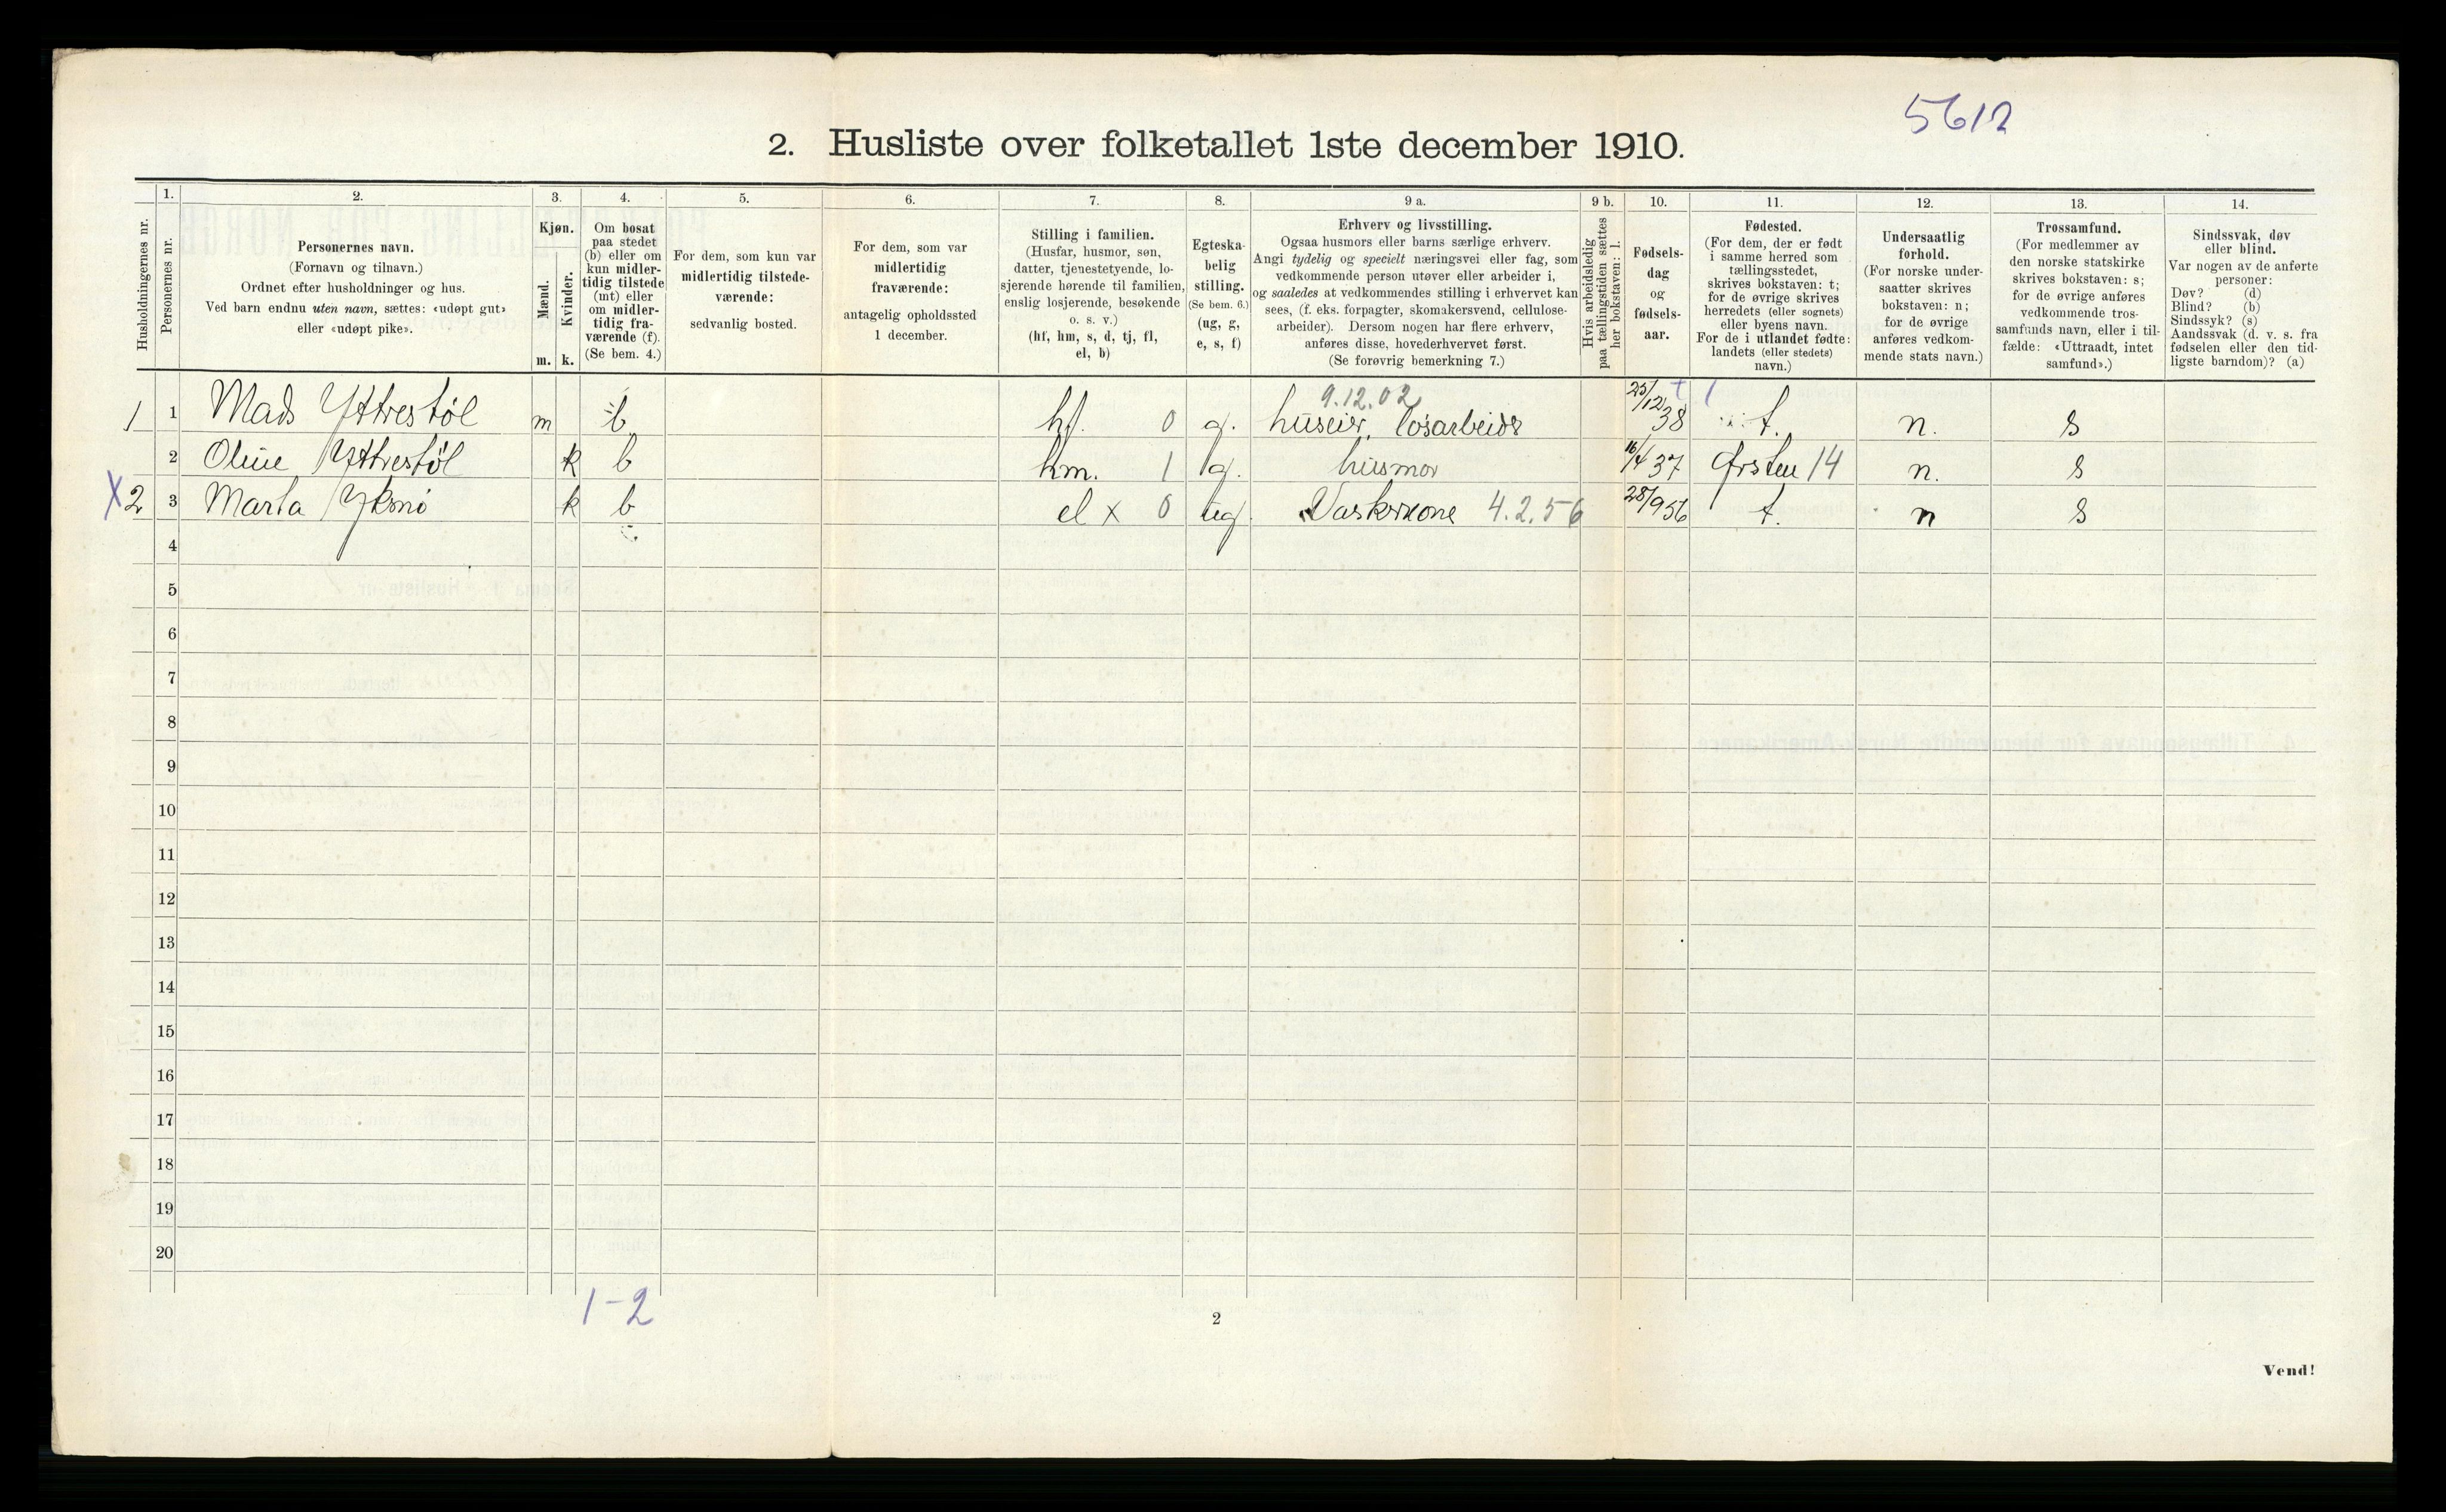 5612
2. Husliste over folketallet 1ste december 1910.
Husholdningernes nr.
1.
Personernes nr.
2.
Personernes navn.
(Fornavn og tilnavn.)
Ordnet efter husholdninger og hus.
Ved barn endnu uten navn, sættes: «udøpt gut»
eller «udøpt pike».
3.
Kjøn.
Mænd.
Kvinder.
m. k.
4.
Om bosat
paa stedet
(b) eller om
kun midler-
tidig tilstede
(mt) eller
om midler-
tidig fra-
værende (f).
(Se bem. 4.)
5.
For dem, som kun var
midlertidig tilstede-
værende:
sedvanlig bosted.
6.
For dem, som var
midlertidig
fraværende:
antagelig opholdssted
1 december.
7.
Stilling i familien.
(Husfar, husmor, søn,
datter, tjenestetyende, lo-
sjerende hørende til familien,
enslig losjerende, besøkende
o. s. v.)
(hf, hm, s, d, tj, fl,
el, b)
8.
Egteska-
belig
stilling.
(Se bem. 6.)
(ug, g,
e, s, f)
9 a.
Erhverv og livsstilling.
Ogsaa husmors eller barns særlige erhverv.
Angi tydelig og specielt næringsvei eller fag, som
vedkommende person utøver eller arbeider i,
og saaledes at vedkommendes stilling i erhvervet kan
sees, (f. eks. forpagter, skomakersvend, cellulose-
arbeider). Dersom nogen har flere erhverv,
anføres disse, hovederhvervet først.
(Se forøvrig bemerkning 7.)
9 b.
Hvis arbeidsledig
paa tællingstiden sættes
her bokstaven: l.
10.
Fødsels-
dag
og
fødsels-
aar.
11.
Fødested.
(For dem, der er født
i samme herred som
tællingsstedet,
skrives bokstaven: t;
for de øvrige skrives
herredets (eller sognets)
eller byens navn.
For de i utlandet fødte:
landets (eller stedets)
navn.)
12.
Undersaatlig
forhold.
(For norske under-
saatter skrives
bokstaven: n;
for de øvrige
anføres vedkom-
mende stats navn.)
13.
Trossamfund.
(For medlemmer av
den norske statskirke
skrives bokstaven: s;
for de øvrige anføres
vedkommende tros-
samfunds navn, eller i til-
fælde: «Uttraadt, intet
samfund».)
14.
Sindssvak, døv
eller blind.
Var nogen av de anførte
personer:
Døv? (d)
Blind? (b)
Sindssyk? (s)
Aandssvak (d. v. s. fra
fødselen eller den tid-
ligste barndom)? (a)
9.12.02
1 1 Mads Yttrestøl m b hf. 0 g. huseier, løsarbeider 25/12 38 t. n. s
2 Oline Yttrestøl k b hm. 1 g. husmor 16/4 37 Ørsten 14 n. s
X 2 3 Marta k b el x 0 ug. Vaskekone 4.2.56 28/9 56 t. n s
4
5
6
7
8
9
10
11
12
13
14
15
16
17
18
19
20
1-2
2
Vend!